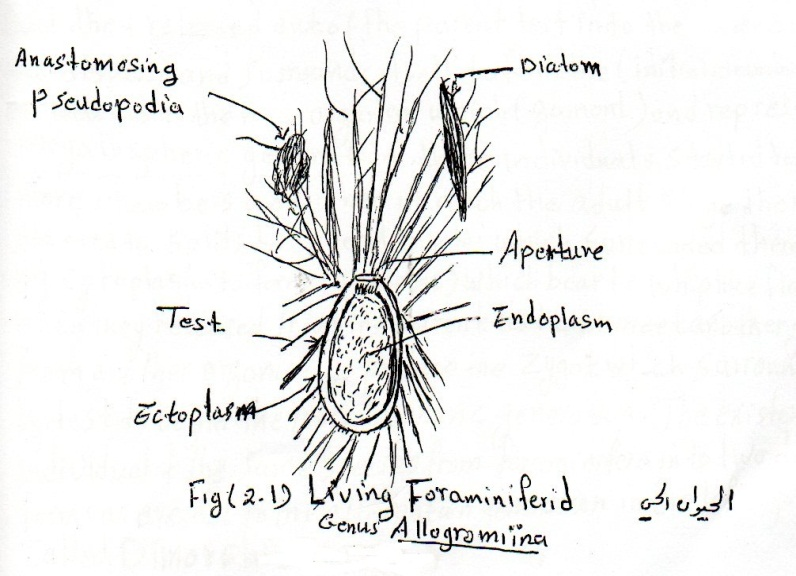 Anastomosing
Pseudopodia
Diatom
Aperture
Test
Endoplasm
Ectoplasm
Fig (2-1) Living Foraminiferid
Genus Allogromiina
الحيوان الحي